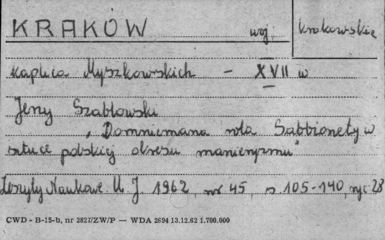 KRAKÓW woj. krakowskie
kaplica Myszkowskich - XVII w
Jerzy Szabłowski
"Domniemana rola Sabbionety w
sztuce polskiej okresu manieryzmu"
Zeszyty Naukowe U. J. 1962, nr 45, s. 105-140, ryc. 28
CWD - B-15-b, nr 2827/ZW/P — WDA 2694 13.12.62 1.700.000